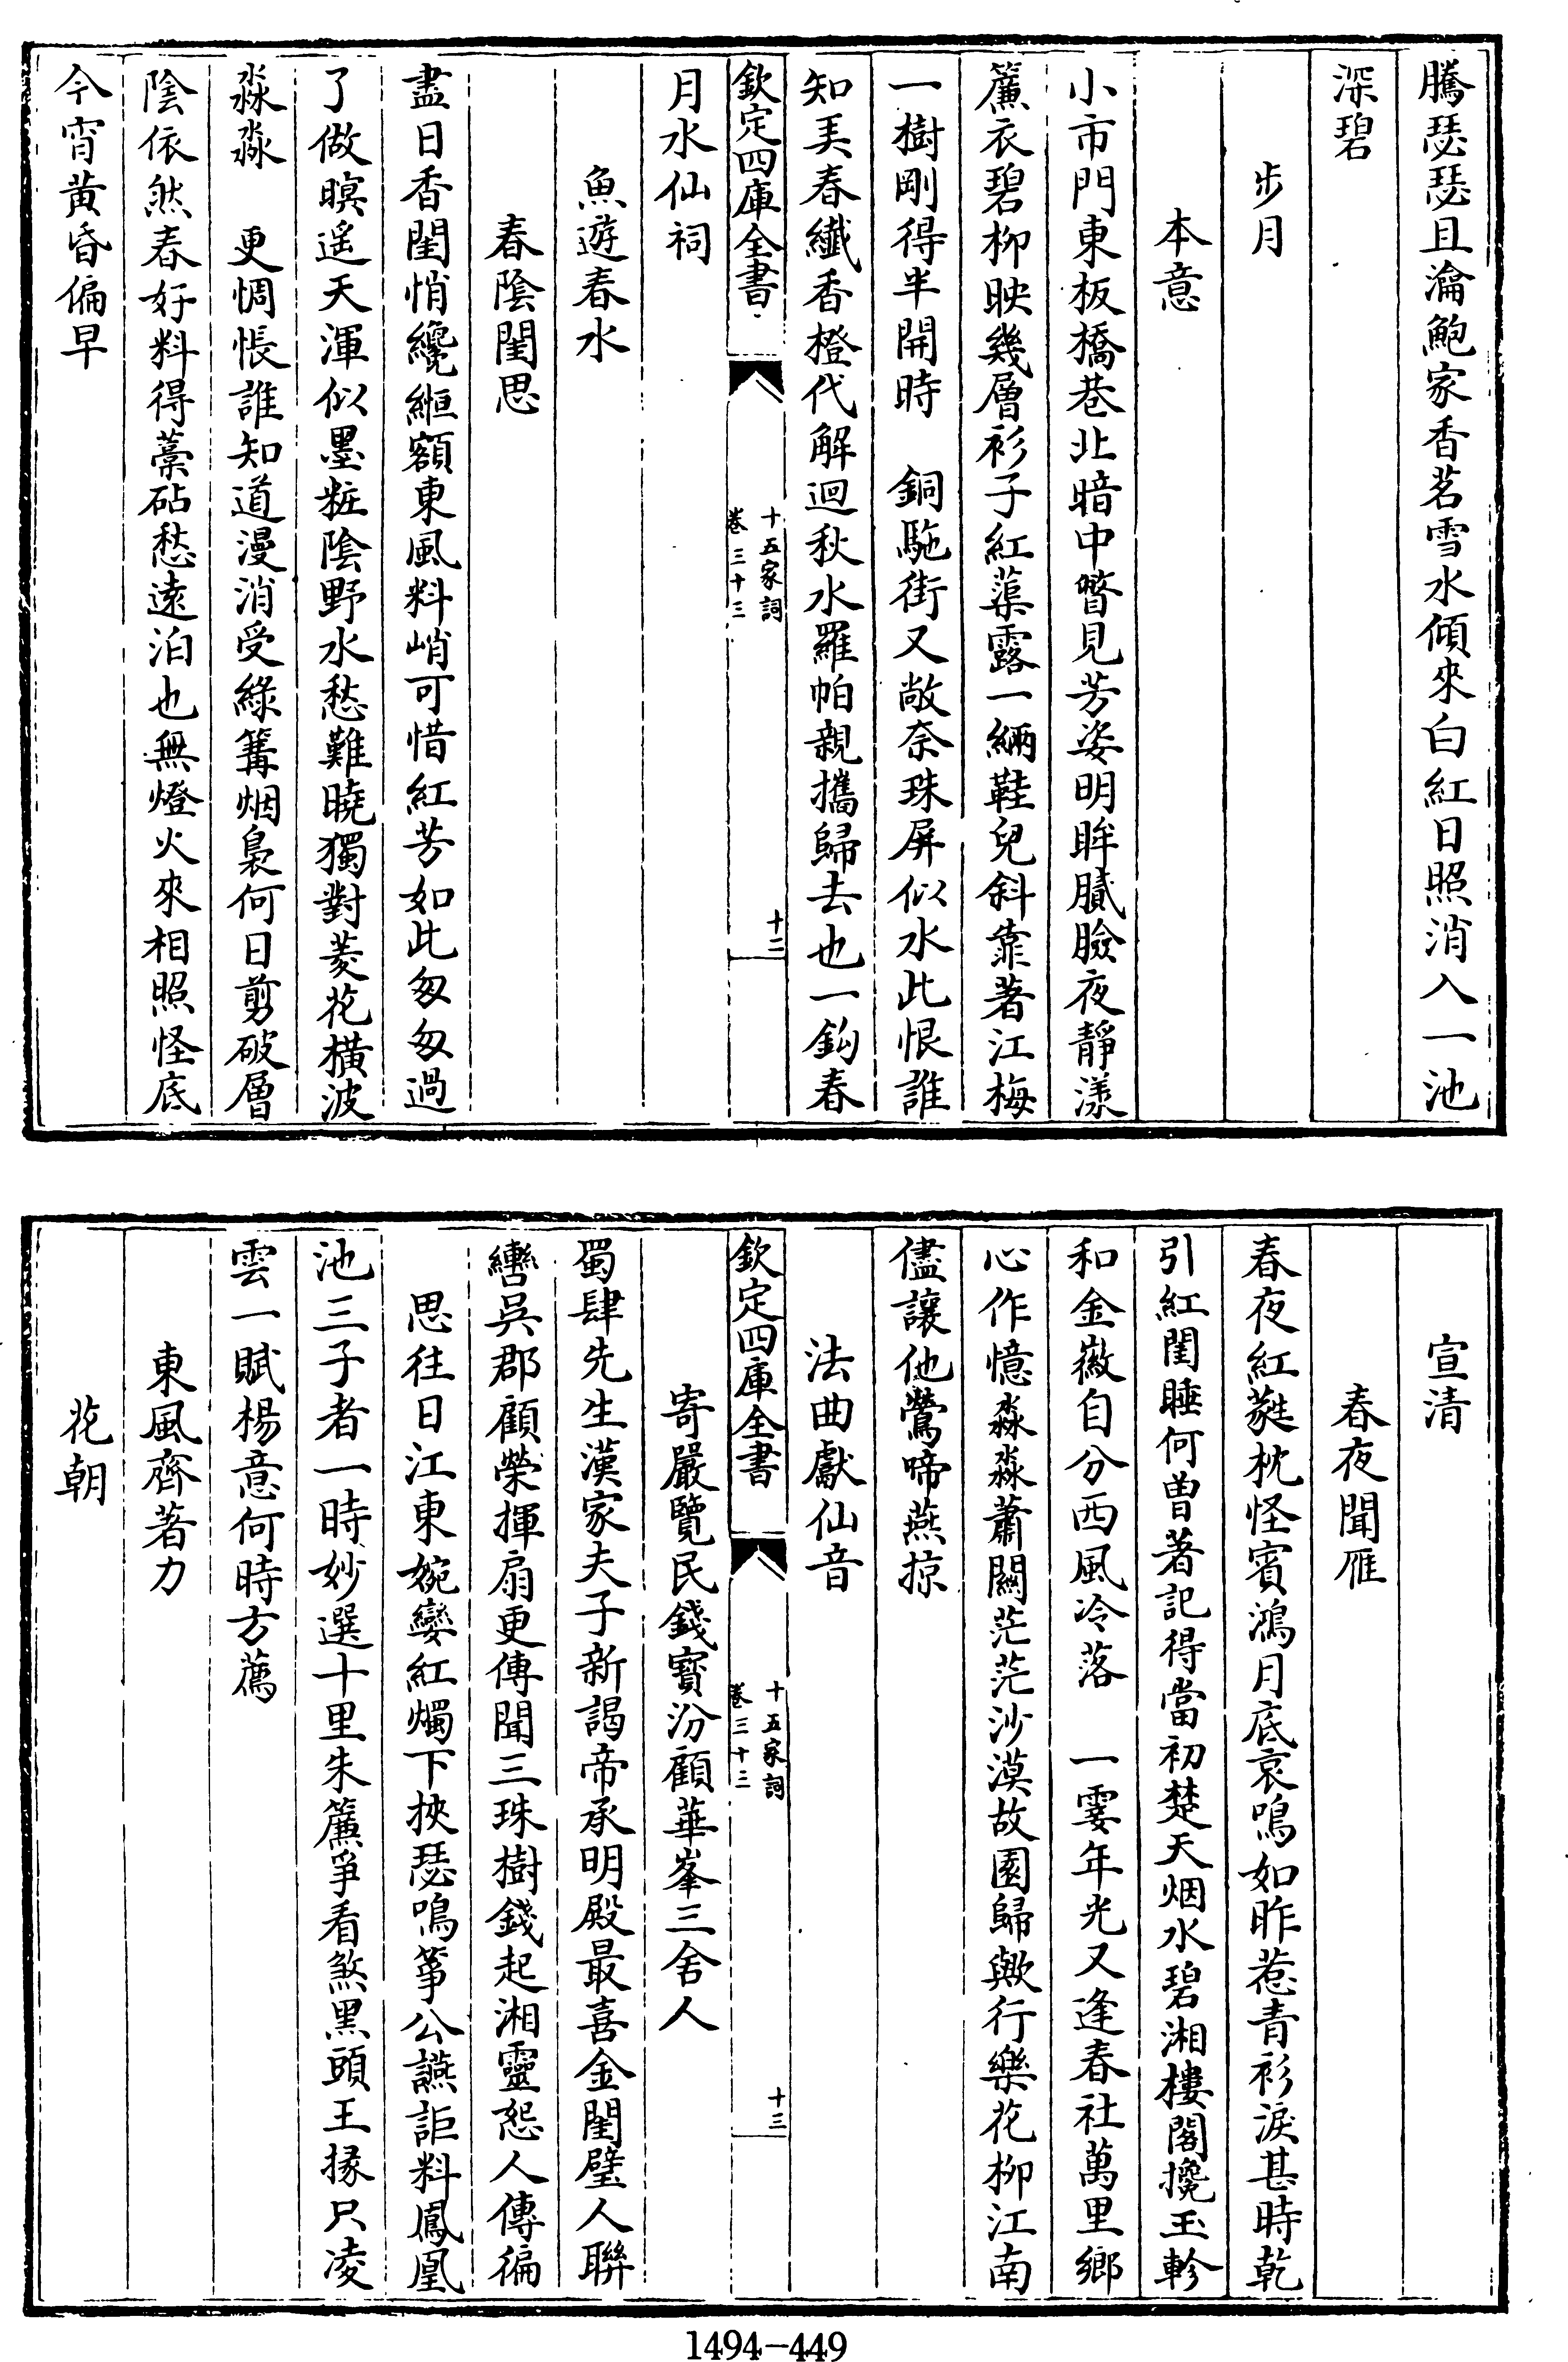 騰瑟瑟且瀹鮑家香茗雪水傾來白紅日照消入一池
深碧
步月
本意
小市門東板橋巷北暗中瞥見芳姿明眸膩臉夜靜漾
簾衣碧柳映幾層衫子紅蕖露一緉鞋兒斜靠著江梅
一樹剛得半開時　銅駞街又敞奈珠屏似水此恨誰
知美春纖香橙代解迴秋水羅帕親攜歸去也一鈎春
欽定四庫全書
十五家詞
卷三十三
十二
月水仙祠
魚遊春水
春陰閨思
盡日香閨悄纔縆額東風料峭可惜紅芳如此匆匆過
了做暝遥天渾似墨粧陰野水愁難曉獨對菱花橫波
淼淼　更惆悵誰知道漫消受綠篝烟裊何日剪破層
陰依然春好料得藁砧愁遠泊也無燈火來相照怪底
今宵黄昏偏早
宣清
春夜聞雁
春夜紅蕤枕怪賓鴻月底哀鳴如昨惹青衫淚甚時乾
引紅閨睡何曽著記得當初楚天烟水碧湘樓閣攙玉軫
和金徽自分西風冷落　一霎年光又逢春社萬里鄉
心作憶淼淼蕭關茫茫沙漠故園歸歟行樂花柳江南
儘讓他鶯啼燕掠
法曲獻仙音
欽定四庫全書
十五家詞
卷三十三
十三
寄嚴覽民錢寳汾顧華峯三舍人
蜀肆先生漢家夫子新謁帝承明殿最喜金閨璧人聯
轡吳郡顧榮揮扇更傳聞三珠樹錢起湘靈怨人傳徧
思往日江東婉孌紅燭下挾瑟鳴箏公讌詎料鳳凰
池三子者一時妙選十里朱簾爭看煞黑頭王掾只凌
雲一賦楊意何時方薦
東風齊著力
花朝
1494-449